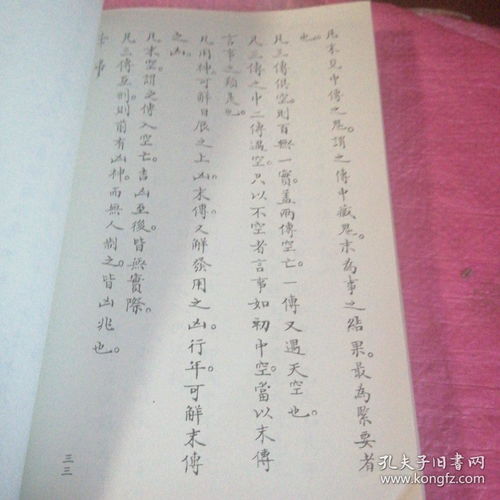 凡末見中傳之鬼。謂之傳中藏鬼。末為事之結果。最為緊要者
也。
凡三傳俱空。則百無一實。蓋兩傳空亡。一傳又遇天空也。
凡三傳之中二傳遇空。只以不空者言事。如初中空。當以末傳
言事之類是也。
凡用神可解日辰之上凶。末傳又解發用之凶。行年可解末傳
之凶。
凡末空。謂之傳入空亡。吉凶至後。皆無實際。
凡三傳互刑。則前有凶神。而無人制之。皆凶兆也。
事
三三
孔夫子旧书网
www.kongfz.com